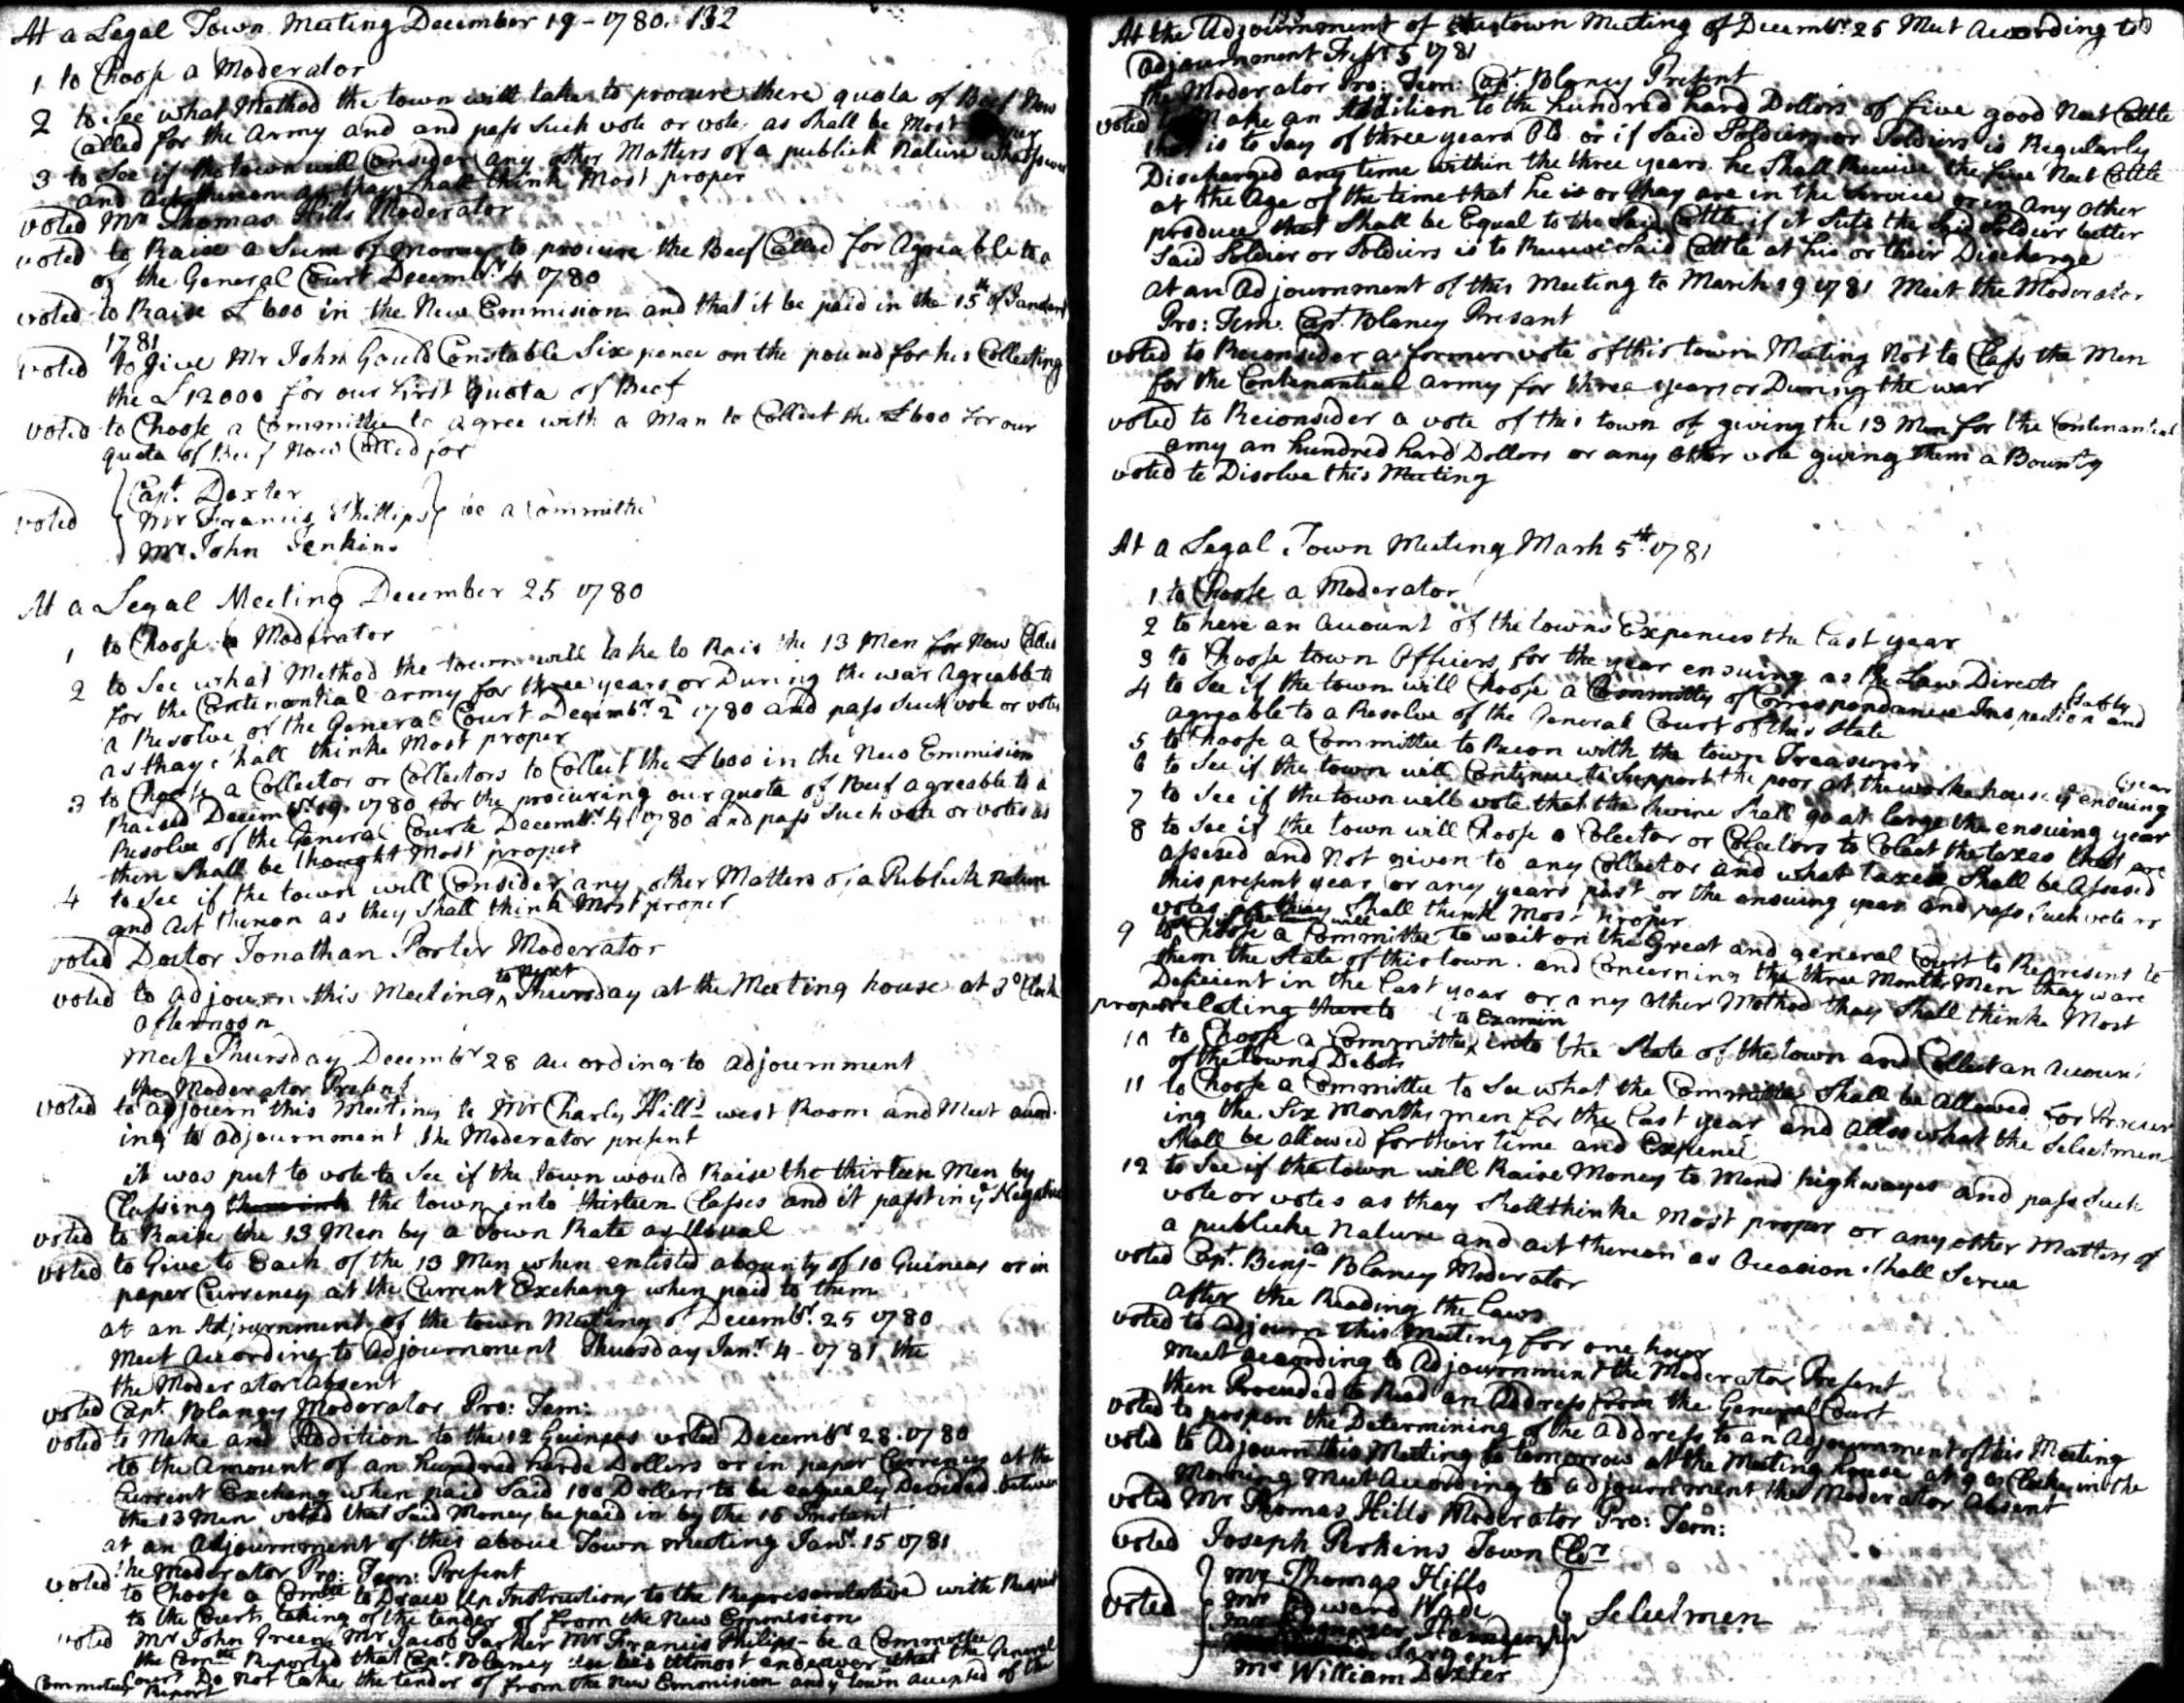 At a Legal Town Meeting December 19 - 1780. 132
1 to Choose a Moderator
2 to See what Method the town will take to procure there quota of Beef Now
Called for the Army and and pass Such vote or vote as shall be Most
3 to See if the town will Consider any other Matters of a publick Nature whatsoever
and act thereon as thay Shall think Most proper
voted Mr Thomas Hills Moderator
voted to Raise a Sum of money to procure the Beef Called for Agreable to a
of the General Court Decembr 4 1780
voted to Raise £600 in the New Emmision and that it be paid in the 15th of
1781
voted to give Mr John Gould Constable Six pence on the pound for his Collecting
the £12000 for our first quota of Beef
voted to Choose a Committee to agree with a Man to Collect the £600 for our
quota of Beef Now Called for
Capt. Dexter
voted Mr Francis Phillips be a Committe
Mr John Jenkins
At a Legal Meeting December 25 1780
1 to Choose a Moderator
2 to See what Method the town will take to Rais the 13 Men for Now Called
for the Contenantial army for three years or During the war Agreable to
a Resolve of the General Court Decembr 2 1780 and pass Such vote or votes
as thay Shall thinke Most proper
3 to Choose a Collector or Collectors to Collect the £600 in the New Emmision
Raised Decembr 19. 1780 for the procuring our quota of Beef agreable to a
Resolve of the General Courte Decembr 4 1780 and pass Such vote or votes as
then Shall be thought Most proper
4 to See if the town will Consider any other Matters of a Publick Nature
and act thereon as they Shall think Most proper
voted Doctor Jonathan Porter Moderator
voted to adjourn this Meeting to Next Thursday at the Meeting house at 3 o Clock
afternoon
Meet Thursday Decembr 28 according to adjournment
the Moderator Present
voted to adjourn this Meeting to Mr Charls Hills west Room and Meet accord
ing to adjournment the Moderator present
it was put to vote to See if the town would Raise the thirteen Men by
Classing the town into thirteen Classes and it past in ye Negative
voted to Raise the 13 Men by a Town Rate as Usual
voted to Give to Each of the 13 Men when enlisted a bounty of 10 Guineas or in
paper Currency at the Current Exchang when paid to them
at an Adjournment of the town Meeting of Decembr. 25 1780
Meet According to Adjournment Thursday Janr 4 - 1781 the
the Moderator Absent
voted Capt. Blaney Moderator Pro: Tem:
voted to Make and Addition to the 12 Guineas voted Decembr 28. 1780
to the Amount of an hundred harde Dollers or in paper Currency at the
Current Exchang when paid Said 100 Dollers to be eaqualy Devided between
the 13 Men voted that Said Money be paid in by the 15 Instant
at an Adjournment of this above Town Meeting Janr. 15 1781
the Moderator Pro: Tem: Present
voted to Choose a Comtee to Draw Up Instructions to the Representative with Respect
to the Courts taking of the tender of from the New Emmision
voted Mr John Green Mr Jacob Parker Mr Francis Philips - be a Committee
the Comtee Reported that Capt. Blaney Use his Utmost endeaver that the General
Court Do Not take the tender of from the New Emmision and ye town accepted of the
Committees Report
At the Adjournment of the town Meeting of Decembr. 25 Meet According to
Adjournment 5 1781
the Moderator Pro: Tem: Capt. Blaney Present
voted Make an Addition to the hundred hard Dollors of five good Neat Cattle
that is to Say of three years Old or if Said Soldier or Soldiers is Regularly
Discharged any time within the three years he Shall Receive the five Neat Cattle
at the Age of the time that he is or thay are in the Service or in any other
produce that Shall be Equal to the Said Cattle if it Sute the Said Soldier better
Said Soldier or Soldiers is to Receive Said Cattle at his or their Discharge
at an Adjournment of this Meeting to March 19 1781 Meet the Moderator
Pro: Tem. Capt. Blaney Presant
voted to Reconsider a former vote of this town Meeting Not to Class the Men
for the Contenantial army for three years or During the war
voted to Reconsider a vote of this town of giving the 13 Men for the Contenantial
army an hundred hard Dollors or any other vote giving them a Bounty
voted to Disolve this Meeting
At a Legal Town Meeting Mark 5th. 1781
1 to Choose a Moderator
2 to here an account of the towns Expences the last year
3 to Choose town Officers for the year ensuing as the Law Directs
4 to See if the town will Choose a Committy of Correspondance Inspection and Safty
agreable to a Resolve of the General Court of this State
5 to Choose a Committee to Recon with the town Treasurer
6 to See if the town will Continue to Support the poor at the worke house ye ensuing year
7 to See if the town will vote that the Swine Shall go at large the ensuing year
8 to See if the town will Choose a Colector or Colectors to Colect the taxes that are
assesed and Not given to any Collector and what taxes Shall be Assesed
this present year or any years past or the ensuing year and pass Such vote or
votes as thay Shall think Most proper
9 to Choose a Committee to wait on the Great and general Court to Represent to
them the State of this town. and Concerning the three Months Men thay ware
Deficient in the last year or any other Method thay Shall thinke Most
proper relating there to
10 to Choose a Committee to Examin into the State of the town and Collect an account
of the towns Debts
11 to Choose a Committee to See what the Committee Shall be allowed for
ing the Six Months men for the last year and allso what the Selectmen
Shall be allowed for their time and Expence
12 to See if the town will Raise Money to Mend highwayes and pass Such
vote or votes as thay Shall thinke Most proper or any other Matters of
a publicke Nature and act thereon as Occasion Shall Serve
voted Capt. Benja Blaney Moderator
after the Reading the Laws
voted to Adjourn this Meeting for one hour
Meet according to Adjournment the Moderator Present
then Proceded to Read an Address from the General Court
voted to pospon the Determining of the address to an Adjournment of this Meeting
voted to Adjourn this Meeting to tomorrow at the Meeting house at 9 o Clocke in the
Morning Meet According to adjournment the Moderator Absent
voted Mr Thomas Hills Moderator Pro: Tem:
voted Joseph Perkins Town Clr
Mr Thomas Hills
voted Mr Edward Wade Selectmen
Mr Ebenezer
Sargent
Mr William Dexter